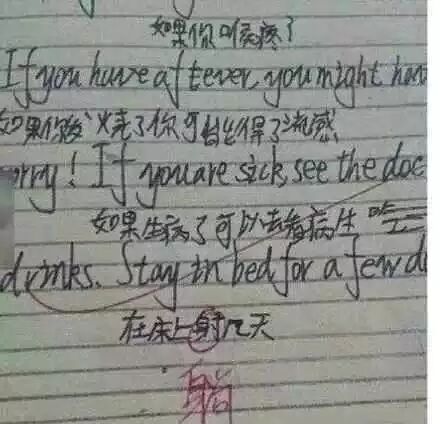 如果你喉疼了
If you have a ftever, you might hav
如果你发烧了你可能得了流感
orry! If you are sick, see the doc
如果生病了可以去看病生
drinks. Stay in bed for a few d
在床上射几天
躺